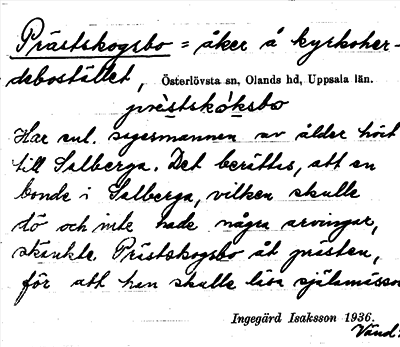 Prästskogsbo = åker å kyrkoher-
debostället, Österlövsta sn, Olands hd, Uppsala län.
prè̀stskòksbo
Har enl. sagesmannen av ålder hört
till Salberga. Det berättas, att en
bonde i Salberga, vilken skulle
dö och inte hade några arvingar,
skänkte Prästskogsbo åt prästen,
för att han skulle läsa själamässor
Ingegärd Isaksson 1936.
Vänd!